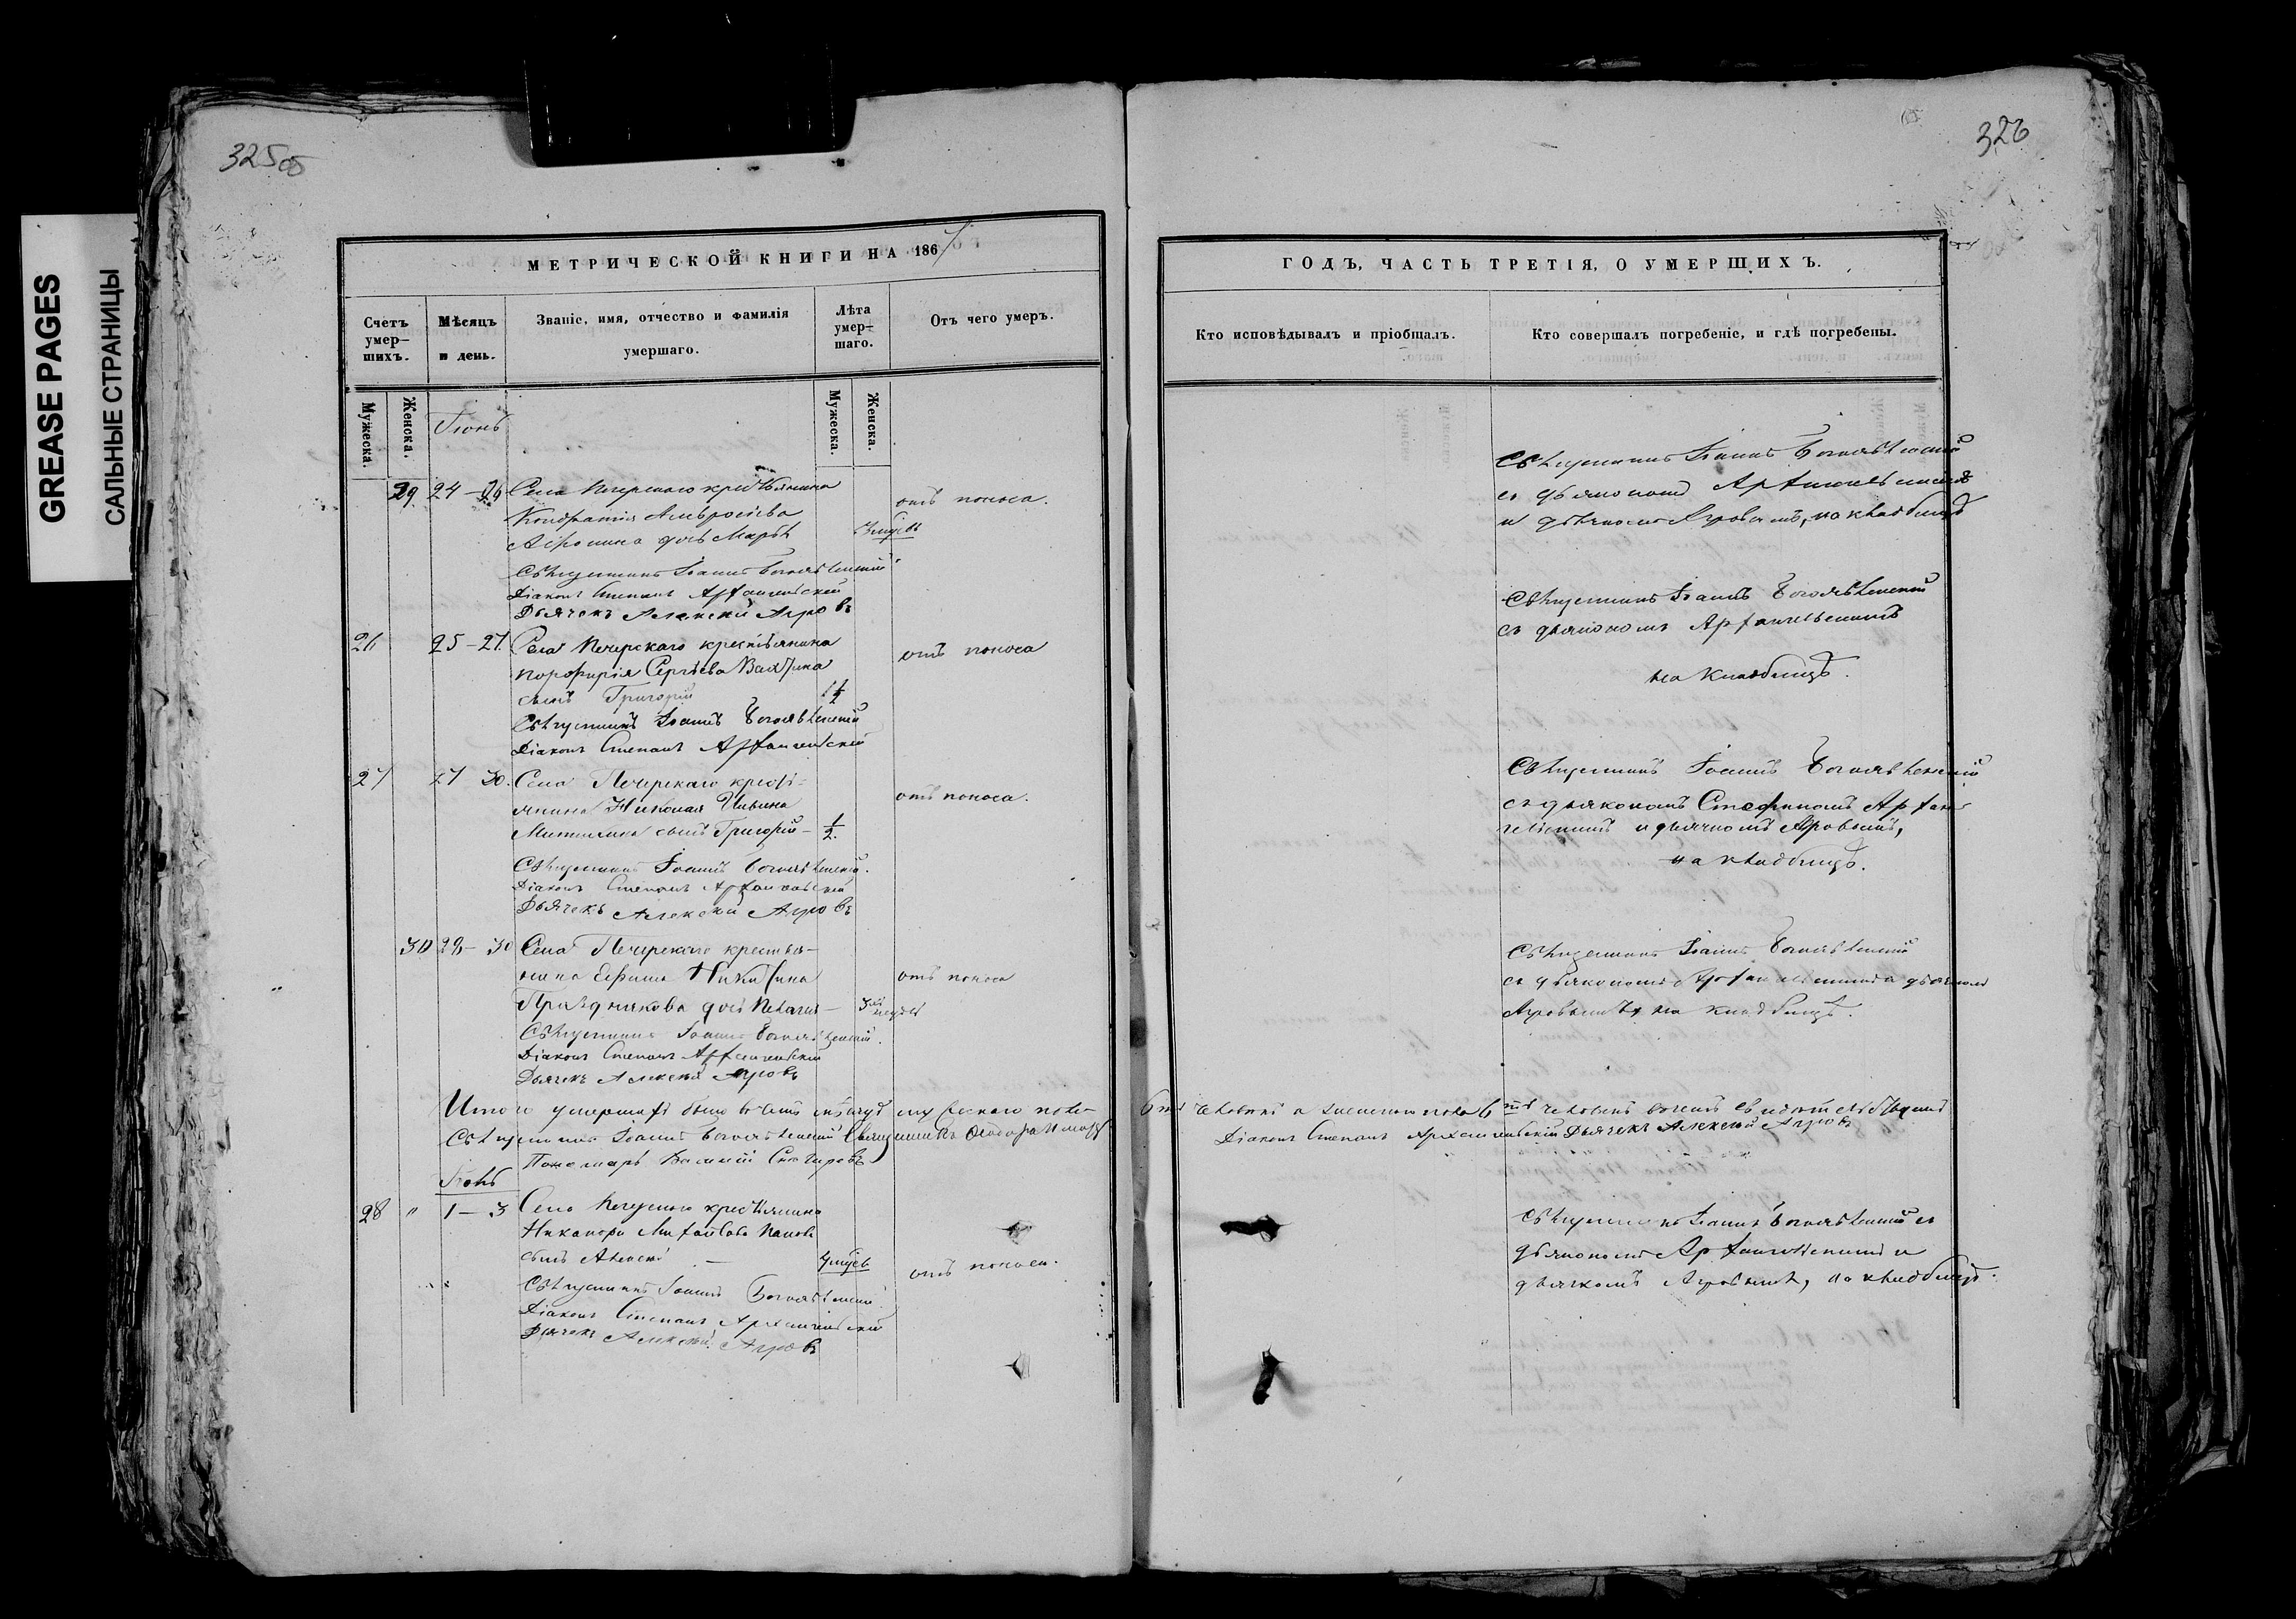 325об
326
GREASE PAGES
САЛЬНЫЕ СТРАНИЦЫ
МЕТРИЧЕСКОЙ КНИГИ НА 1867
Счетъ умер-шихъ.
Мѣсяцъ и день.
Званіе, имя, отчество и фамилія умершаго.
Лѣта умер-шаго.
Отъ чего умеръ.
Мужеска.
Женска.
Мужеска.
Женска.
Іюнь
29 24 - 26 Села Печерскаго крестьянина отъ поноса.
Кондратія Амвросіева
дочь Марѳа
Священникъ Іоаннъ Богоявленскій
Діаконъ Стефанъ Архангельскій
Дьячекъ Алексѣй Агровъ
26 25 - 27 Села Печерскаго крестьянина отъ поноса
Порфирія Сергѣева
сынъ Григорій 1 1/2
Священникъ Іоаннъ Богоявленскій
Діаконъ Стефанъ Архангельскій
27 27 30. Села Печерскаго кресть-
янина Николая отъ поноса.
сынъ Григорій - 1/2.
Священникъ Іоаннъ Богоявленскій.
Діаконъ Стефанъ Архангельскій
Дьячекъ Алексѣй Агровъ
30 28 - 30 Села Печерскаго крестья-
нина Ефима Никитина отъ поноса
Праздникова дочь Пелагія - 3
Священникъ Іоаннъ Богоявленскій.
Діаконъ Стефанъ Архангельскій
Дьячекъ Алексѣй Агровъ
Итого умершихъ было въ семъ мѣсяцѣ мужескаго пола
Священникъ Іоаннъ Богоявленскій Священникъ
Пономарь Василій
Іюль
28 " 1 - 3 Села Печерскаго крестьянина
Никанора Михайлова
сынъ Алексѣй - отъ поноса.
Священникъ Іоаннъ Богоявленскій
Діаконъ Стефанъ Архангельскій
Дьячекъ Алексѣй Агровъ
ГОДЪ, ЧАСТЬ ТРЕТІЯ, О УМЕРШИХЪ.
Кто исповѣдывалъ и пріобщалъ.
Кто совершалъ погребеніе, и гдѣ погребены.
Священникъ Іоаннъ Богоявленскій
съ дьякономъ Архангельскимъ
и дьячкомъ Агровымъ, на кладбищѣ
Священникъ Іоаннъ Богоявленскій
съ дьякономъ Архангельскимъ
на кладбищѣ.
Священникъ Іоаннъ Богоявленскій
съ дьякономъ Стефаномъ Архан-
гельскимъ и дьячкомъ Агровымъ,
на кладбищѣ.
Священникъ Іоаннъ Богоявленскій
съ дьякономъ Архангельскимъ и дьячкомъ
Агровымъ на кладбищѣ.
человѣкъ а женскаго пола 6 человѣкъ
Діаконъ Стефанъ Архангельскій Дьячекъ Алексѣй Агровъ
Священникъ Іоаннъ Богоявленскій съ
дьякономъ Архангельскимъ и
дьячкомъ Агровымъ, на кладбищѣ.